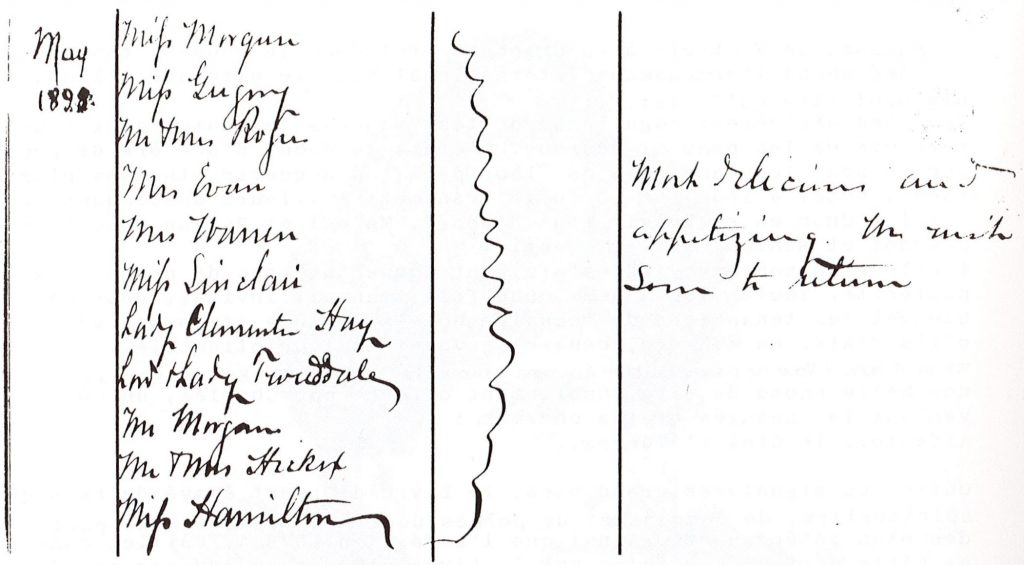 May
1898.
Miss Morgan
Miss Guguy
Mr & Mrs Roger
Mrs Evan
Mrs Warren
Miss Sinclair
Lady Clementine Hay
Lord & Lady Tweeddale
Mr Morgan
Mr & Mrs Hickox
Miss Hamilton
Most delicious and
appetizing. We wish
soon to return